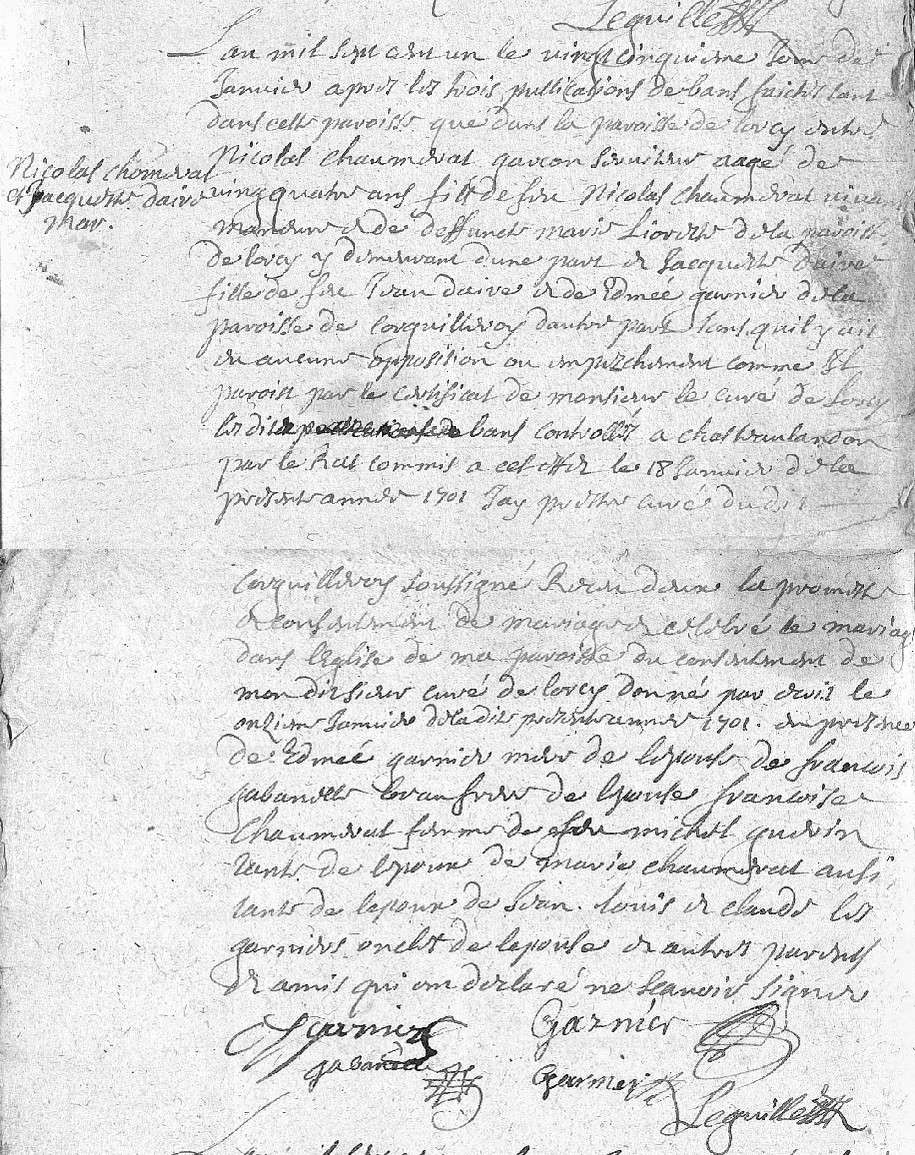 Leguille
Lan mil sept cent un le vingtcinquieme Jour de
Janvier apres les trois publications de bans faictes tant
dans cette paroisse que dans la paroisse de lorcy entre
Nicolas chomerat
et Jacquette daire
mar.
Nicolas chaumerat garcon serviteur aagé de
vingquatre ans fils de feu Nicolas Chaumerat vivant
maneuvre et de deffuncte marie Liorette de la paroisse
de lorcy y demeurant dune part et Jacquette daire
fille de feu Jean daire et de Edmeé garnier de la
paroisse de Corquilleroy dautre part sans quil y ait
eu aucune opposition ou empeschement comme Il
paroist par le certificat de monsieur le curé de Lorcy
lesdits bans controllés a chasteaulandon
par le Rat commis a cet effet le 18 Janvier de la
presente année 1701 Jay prestre curé dudit
Corquilleroy soussigné Receu deux la promesse
et consentement de mariage et celebré le mariage
dans leglise de ma paroisse du consentement de
mondit sieur curé de lorcy donné par escrit le
onzieme Janvier de ladite presente année 1701. en presence
de Edmeé garnier mere de lepouse de francois
gabanelle beaufrere de lepouse francoise
Chaumerat femme de feu michel guerin
tante de lepoux de marie chaumerat aussi
tante de lepoux de Jean. louis et claude les
garniers oncles de lepouse et autres parents
et amis qui ont declaré ne scavoir signer
garnier Garnier
gabanelle Garnier
Leguille